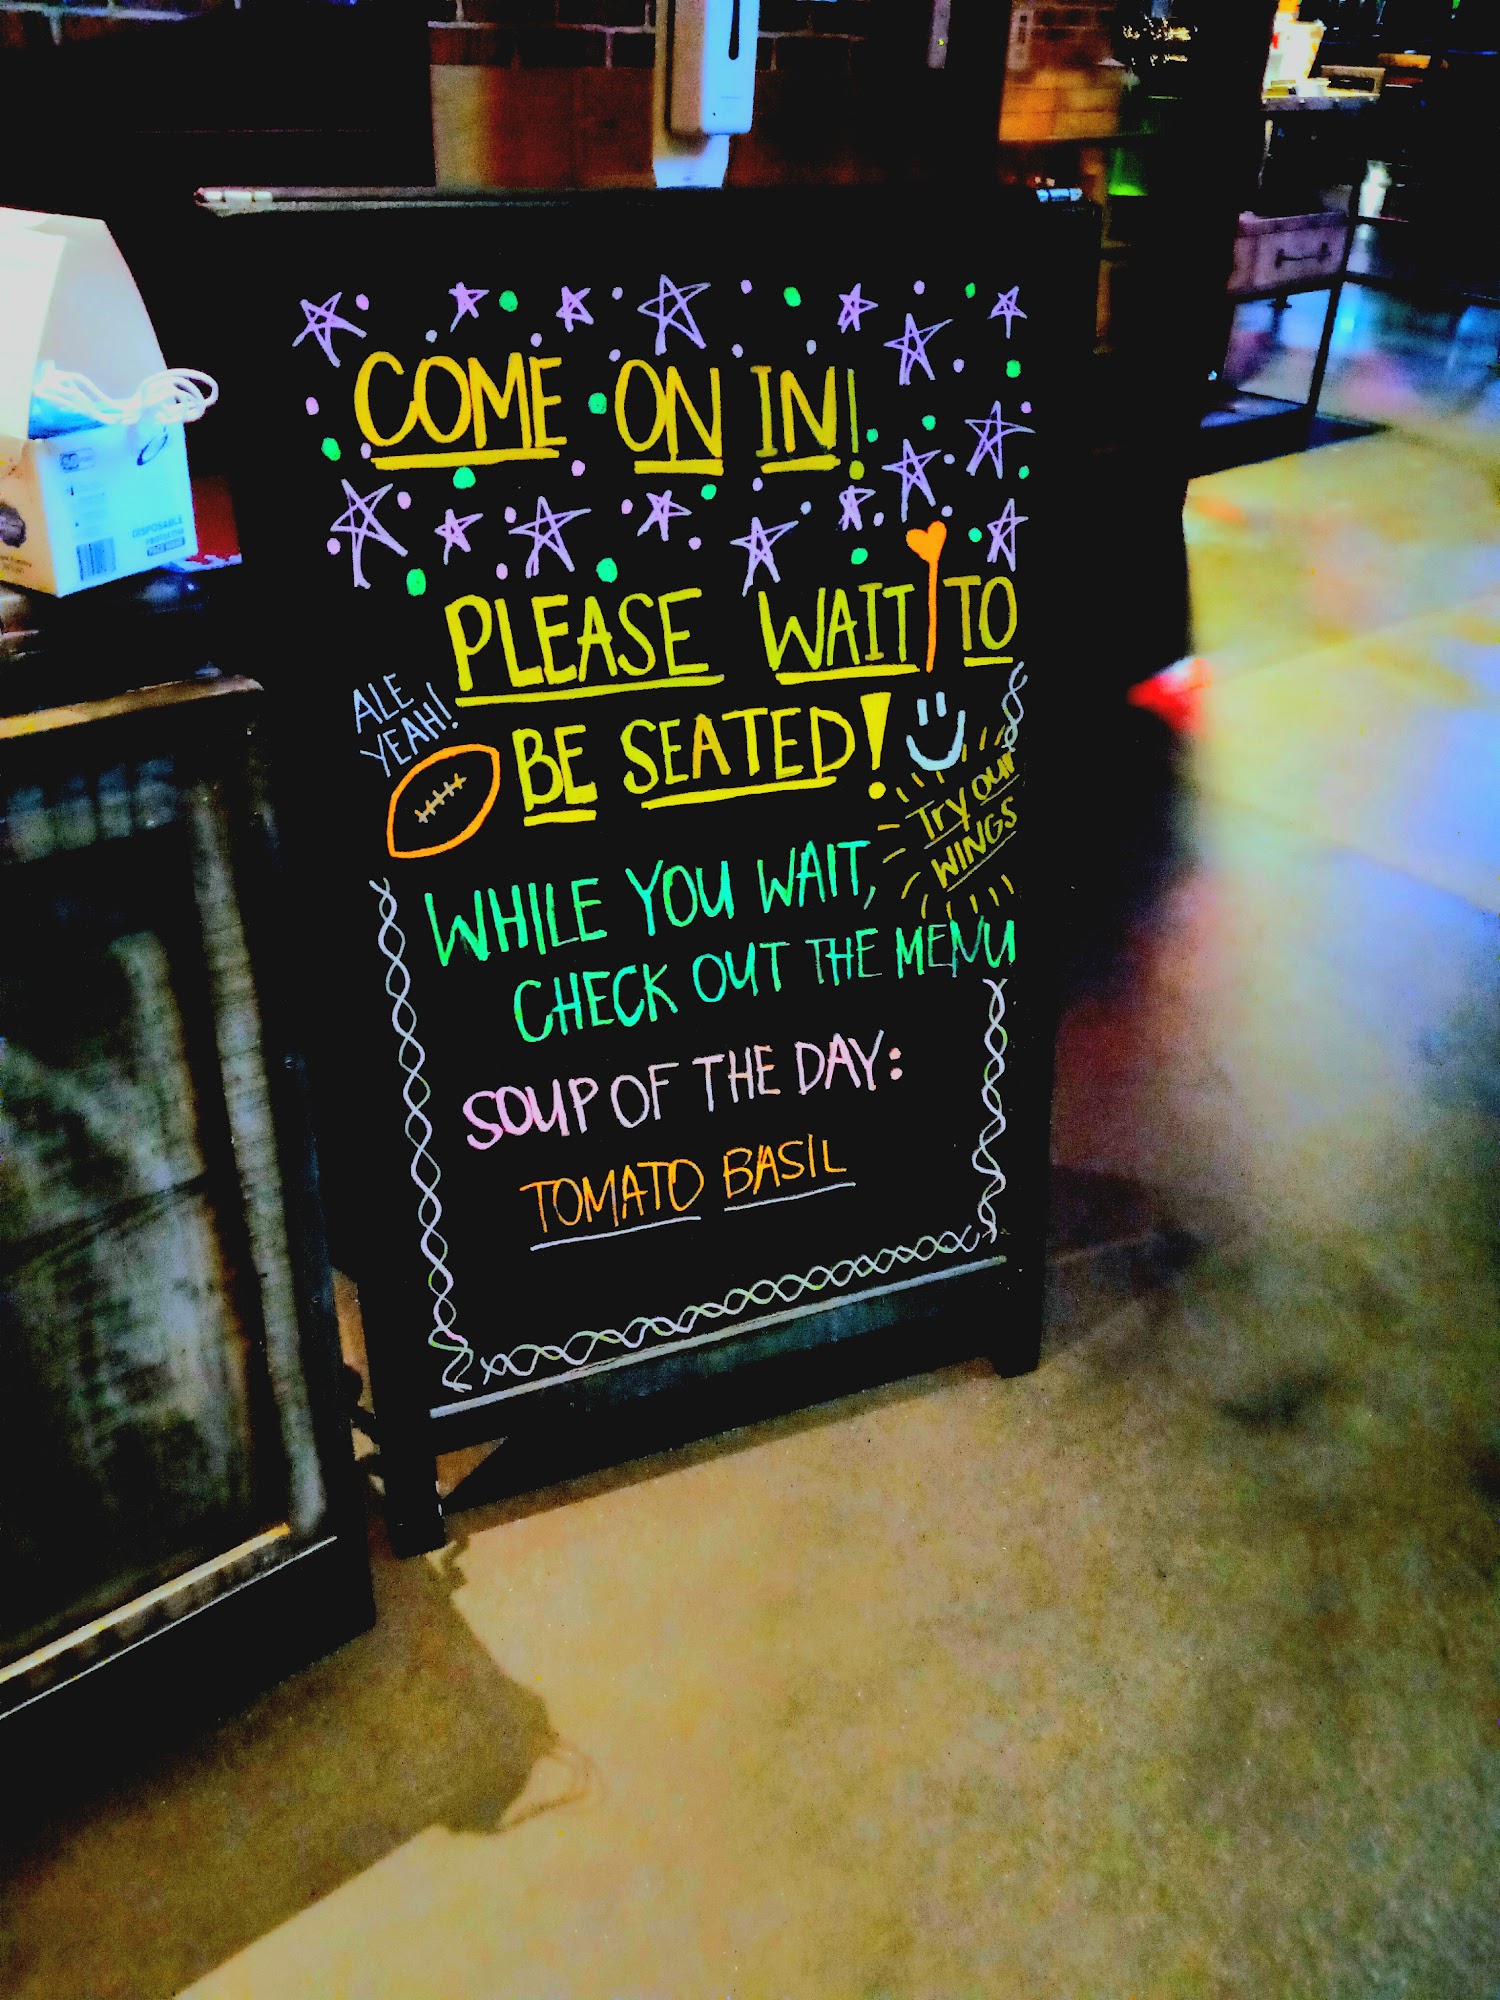 COME ON IN!
PLEASE WAIT TO
BE SEATED!
ALE
YEAH!
Try our
WINGS
WHILE YOU WAIT,
CHECK OUT THE MENU
SOUP OF THE DAY:
TOMATO BASIL
DISPOSABLE